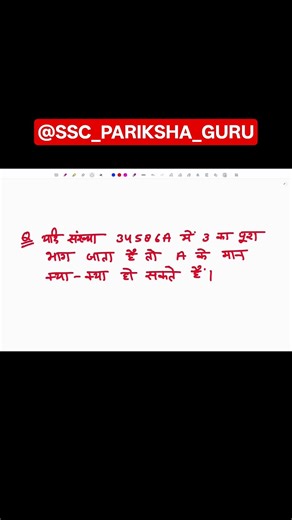 @SSC_PARIKSHA_GURU
Q यदि संख्या 34586A में 3 का पूरा
भाग जाता है तो A के मान
क्या-क्या हो सकते हैं।